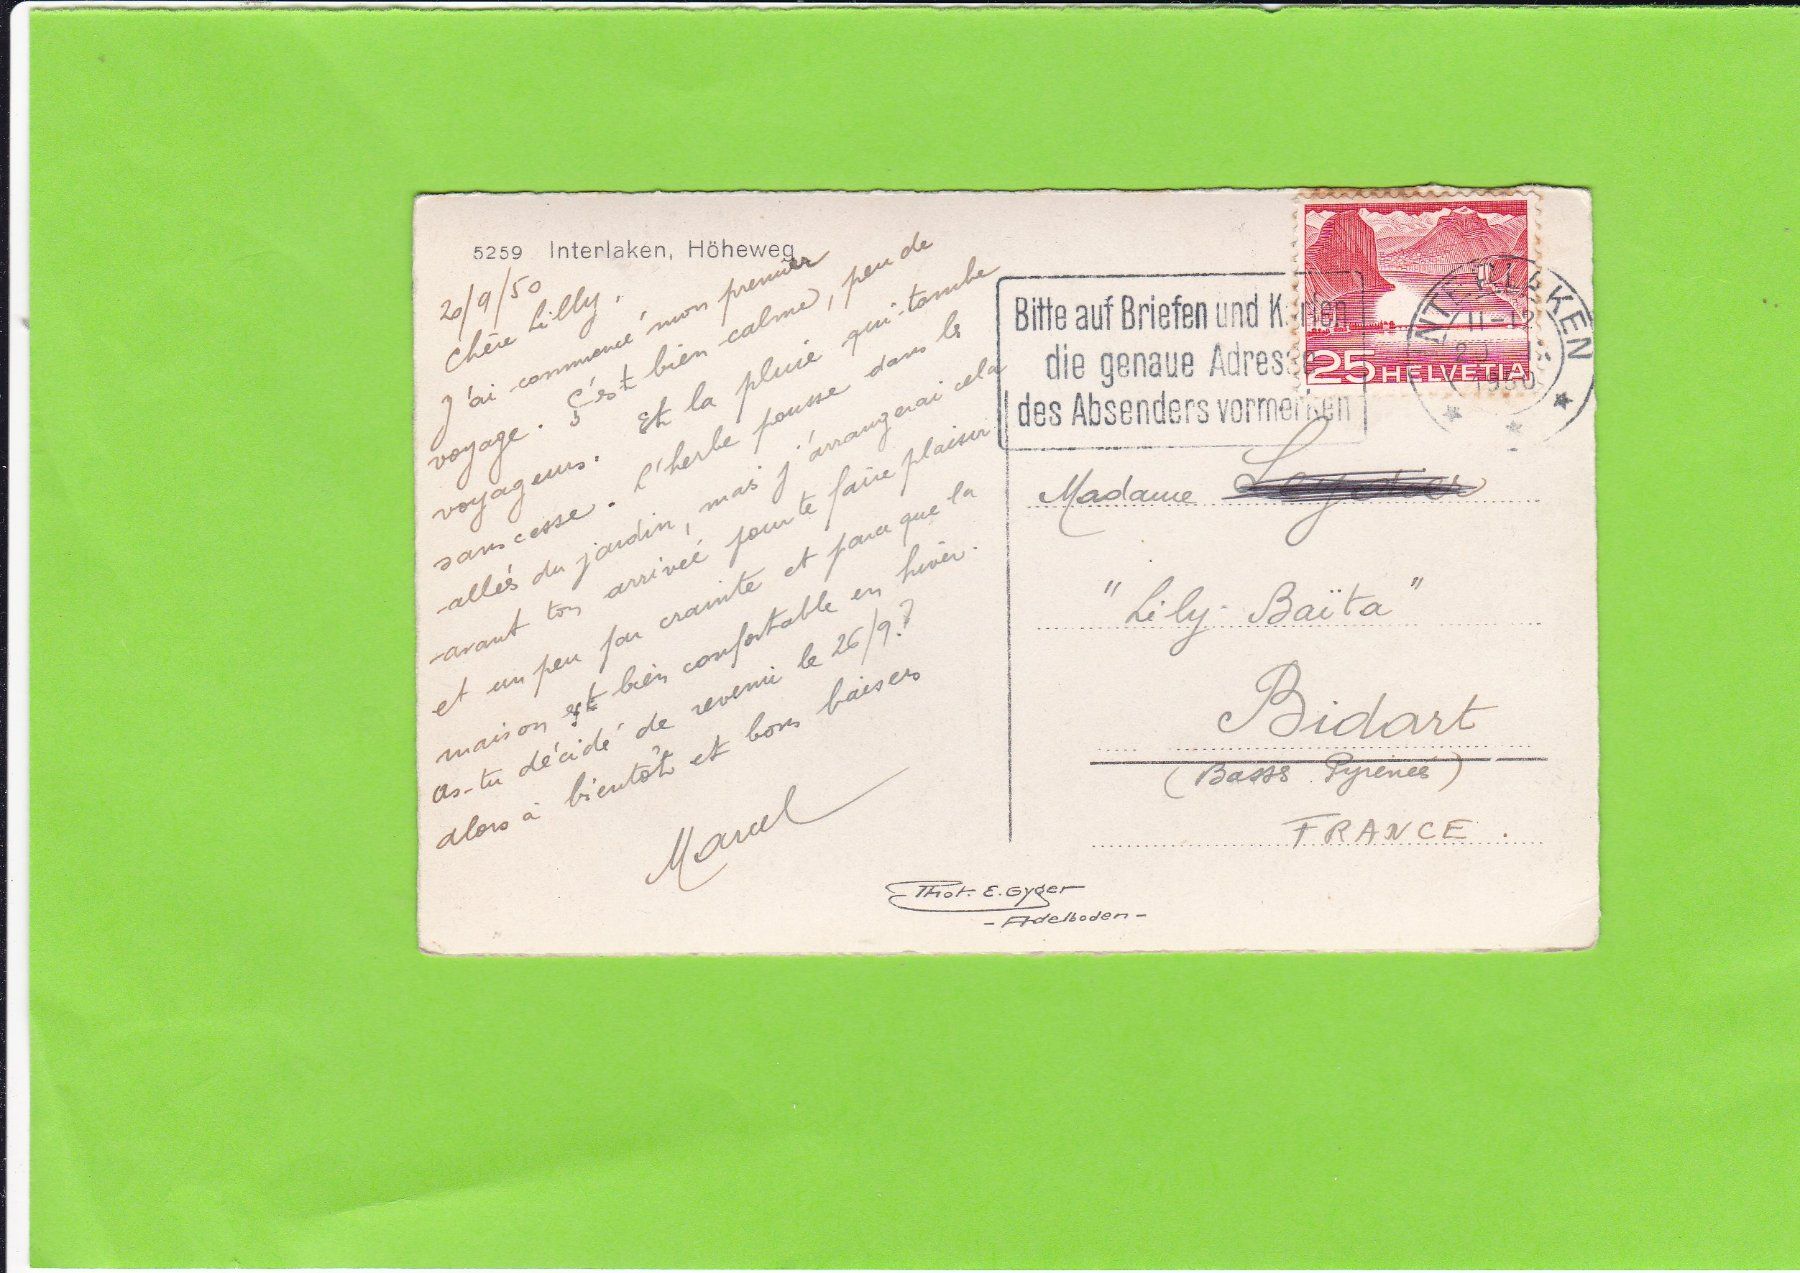 5259 Interlaken, Höheweg
20/9/50
Chère Lilly.
J'ai commencé mon premier
voyage. C'est bien calme, peu de
voyageurs. Et la pluie qui tombe
sans cesse. l'herbe pousse dans les
allées du jardin, mais j'arrangerai cela
avant ton arrivée pour te faire plaisir
et un peu par crainte et parce que la
maison est bien confortable en hiver.
as-tu décidé de revenir le 26/9?
alors à bientôt et bons baisers
Marcel
Bitte auf Briefen und Karten
die genaue Adresse
des Absenders vormerken
25 HELVETIA
INTERLAKEN
11-12
1950
Madame
"Lily-Baïta"
Bidart
(Basses Pyrénées)
FRANCE.
Phot. E. Gyger
- Adelboden -